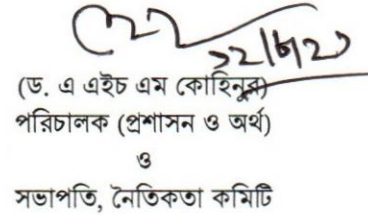 ১২/৮/২১
(ড. এ এইচ এম কোহিনুর)
পরিচালক (প্রশাসন ও অর্থ)
ও
সভাপতি, নৈতিকতা কমিটি